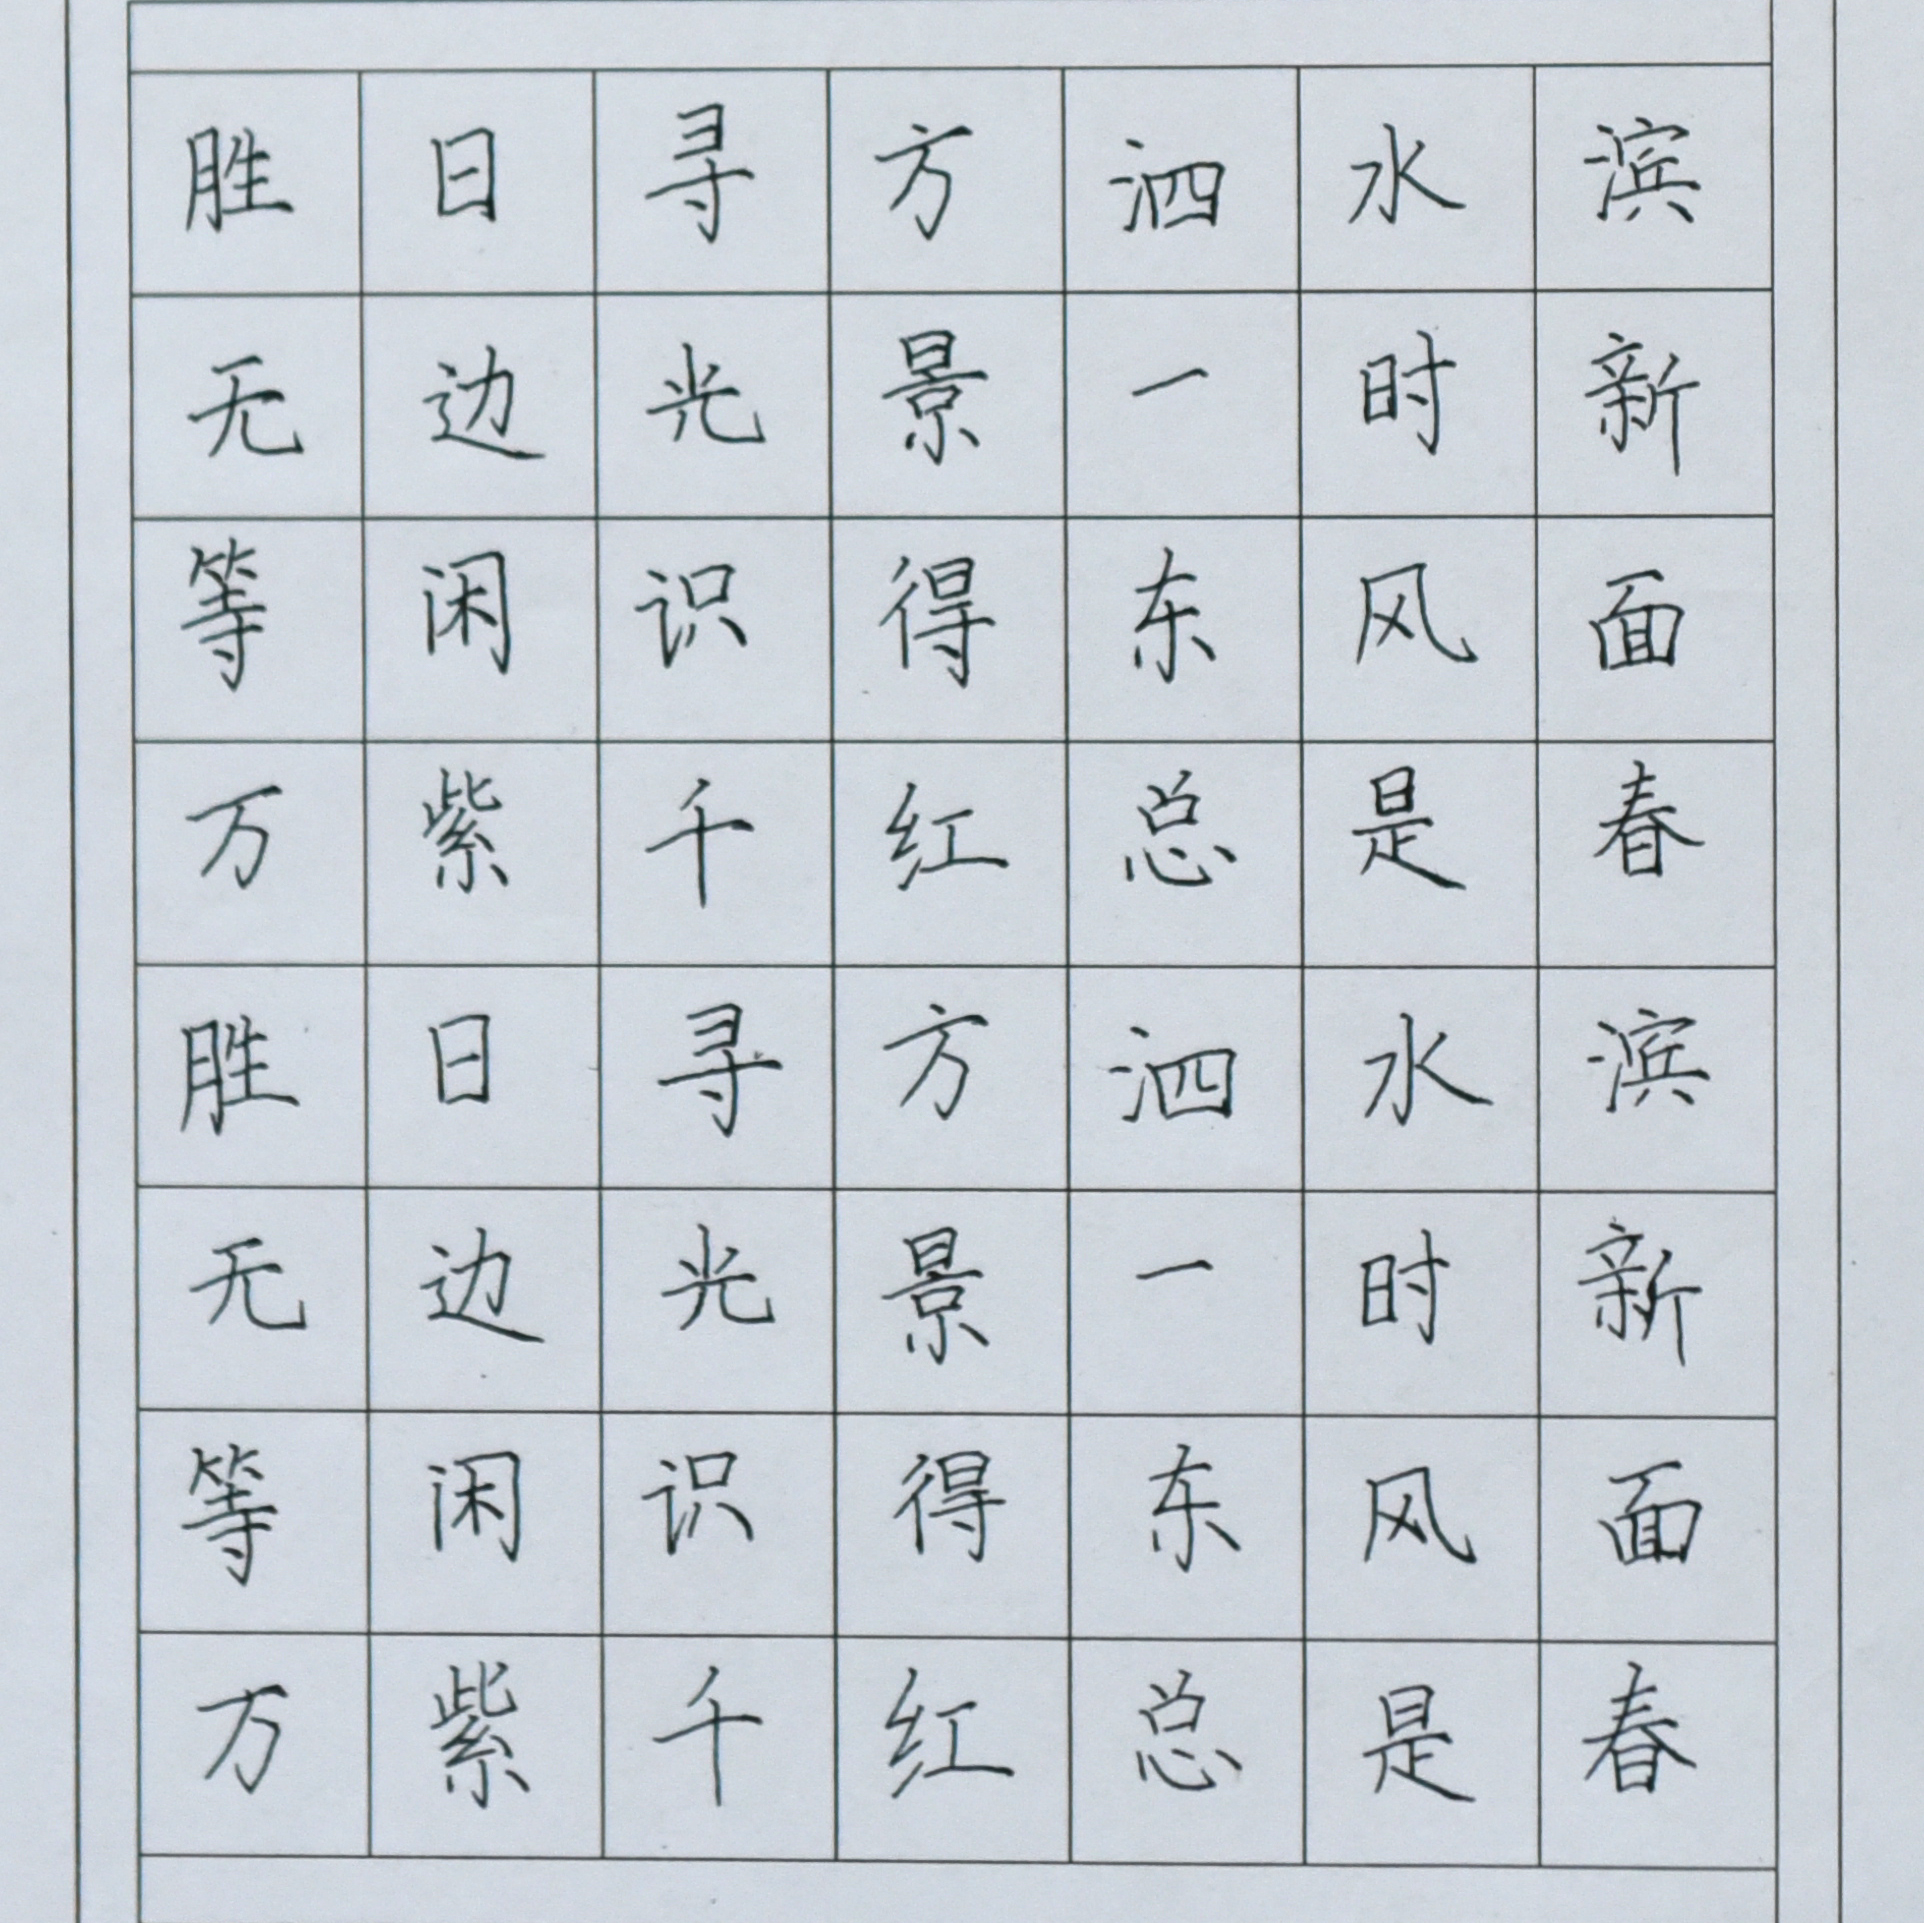 胜日寻方泗水滨
无边光景一时新
等闲识得东风面
万紫千红总是春
胜日寻方泗水滨
无边光景一时新
等闲识得东风面
万紫千红总是春